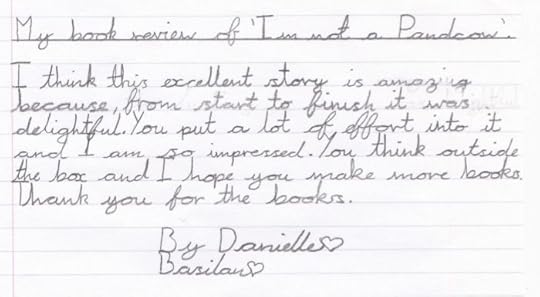 My book review of 'I'm not a Pandcow'.
I think this excellent story is amazing
because, from start to finish it was
delightful. You put a lot of effort into it
and I am so impressed. You think outside
the box and I hope you make more books.
Thank you for the books.
By Danielle♡
Basilau♡